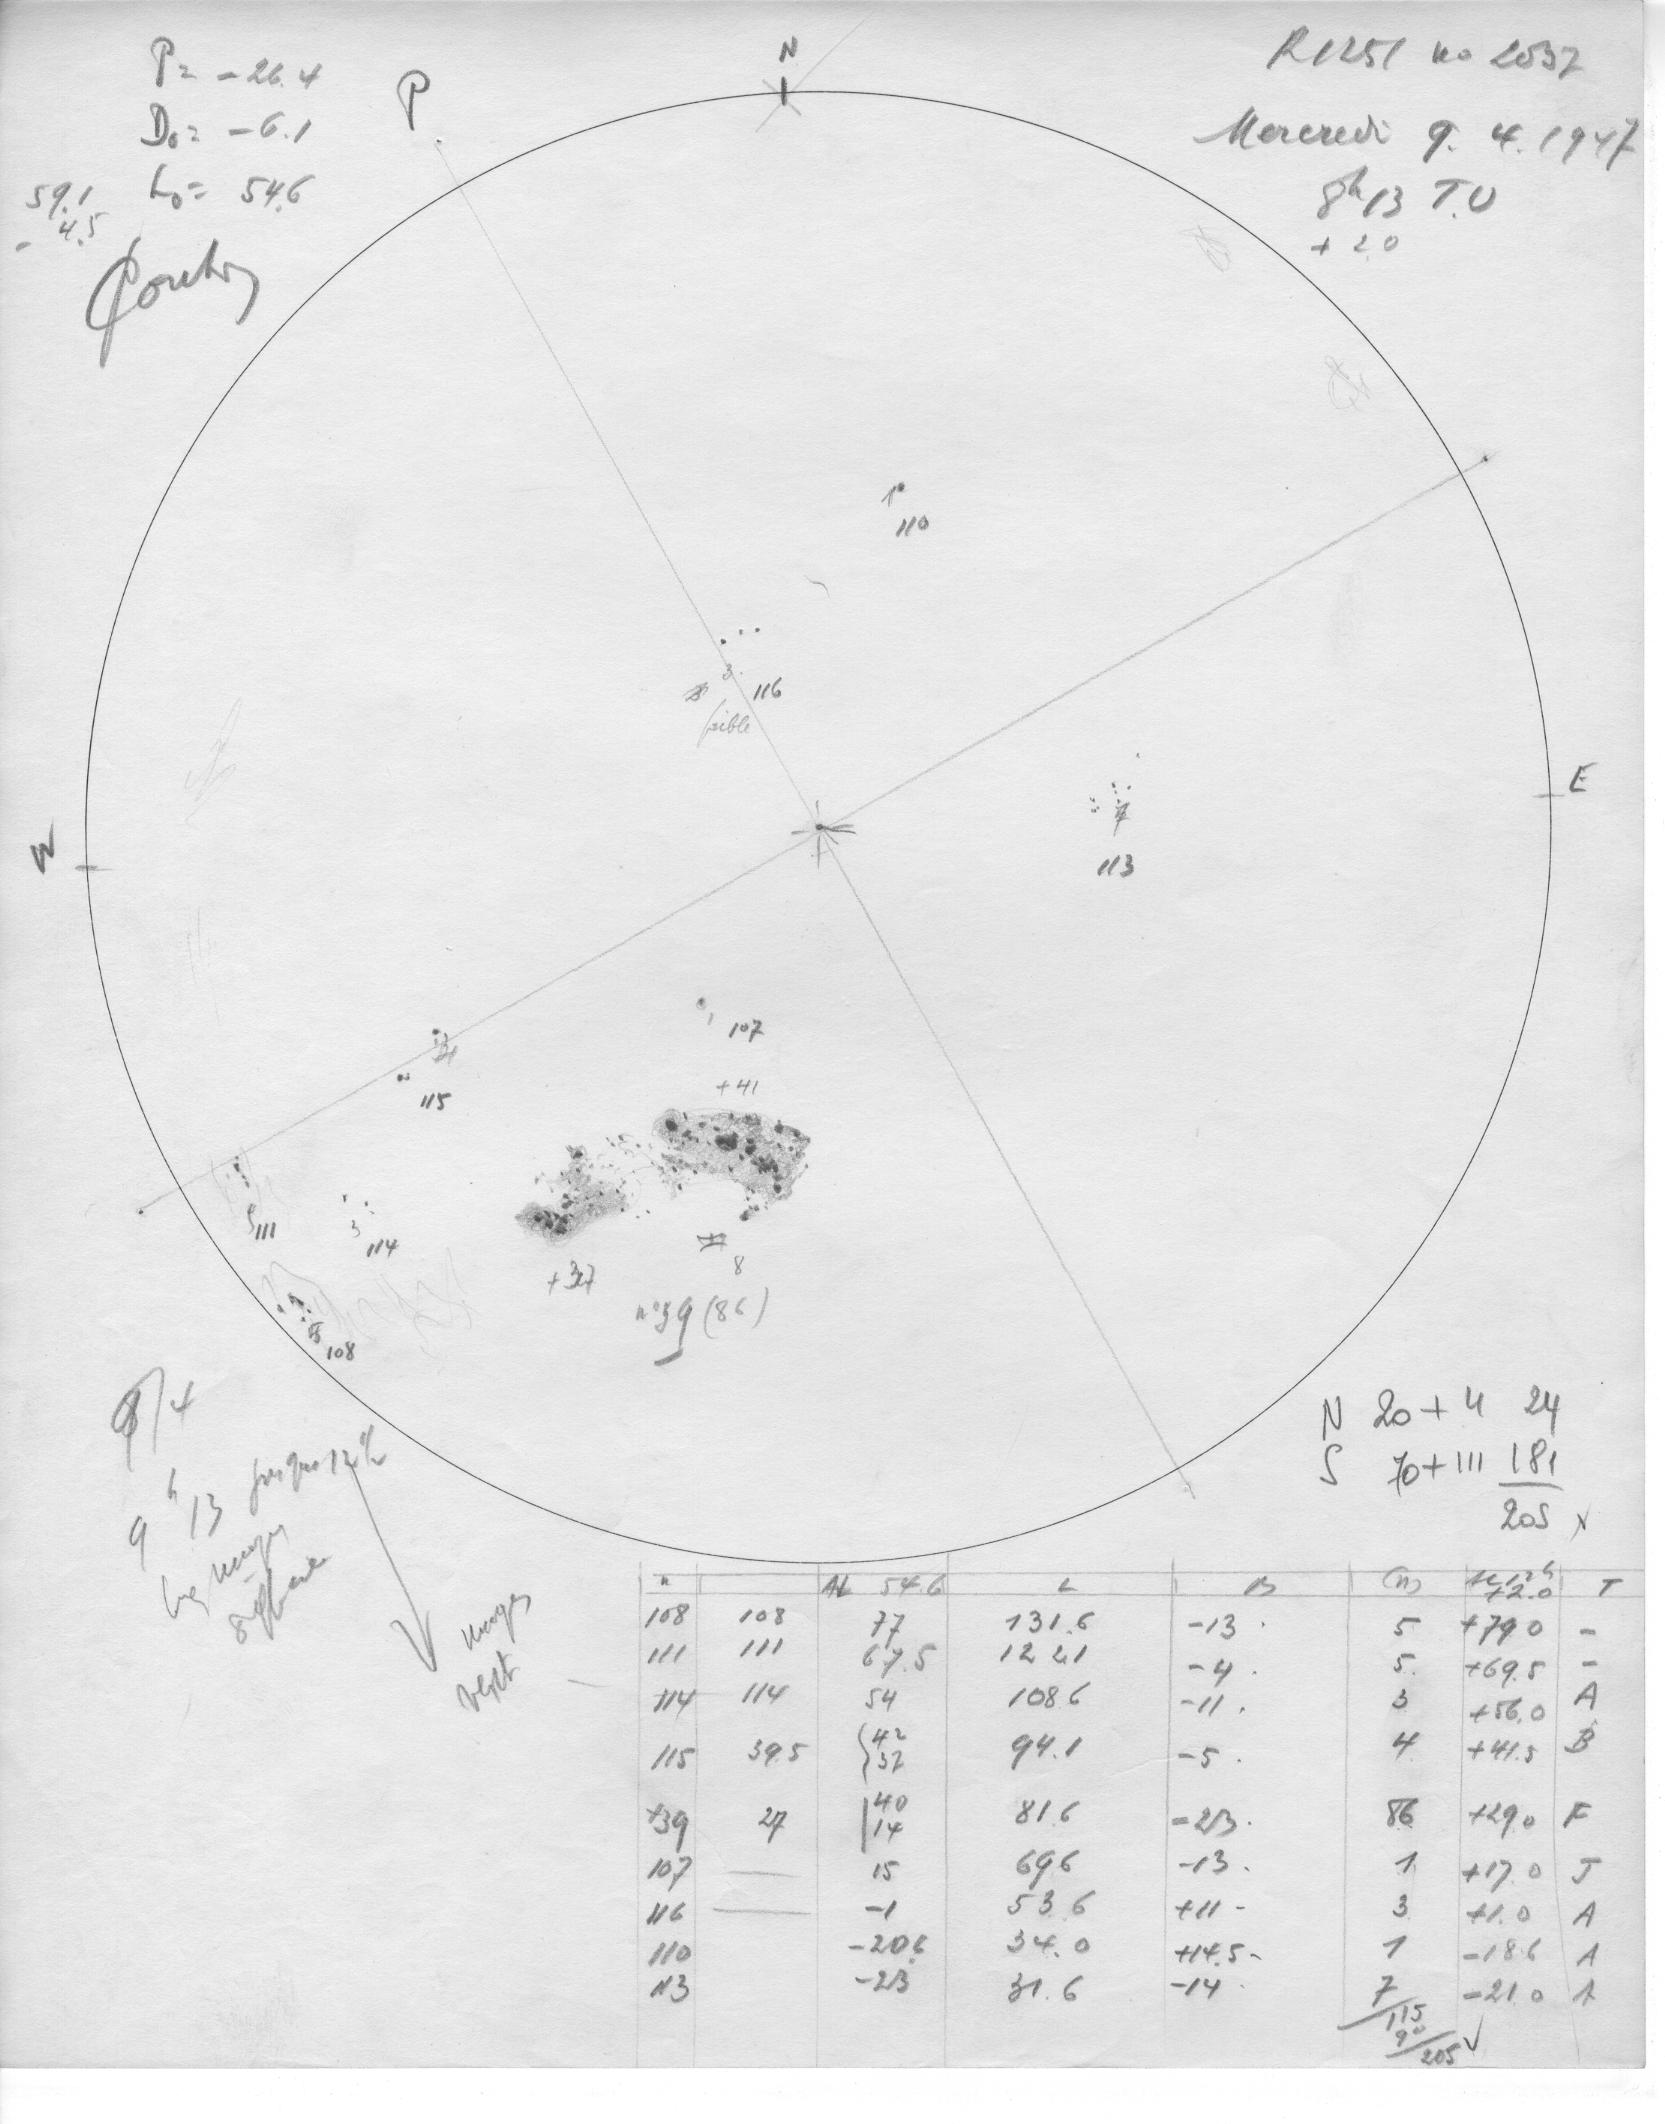 P = -26.4
D₀ = -6.1
59.1 L₀ = 54.6
- 4.5
P
N
R1251 no 2037
Mercredi 9. 4. 1947
8h 13 T.U
+ 2.0
110
3
116
faible
E
7
113
W
1 107
+ 41
115
5 111
3
114
+ 37
8
n° 39 (86)
108
9/4
9h 13 jusque 12h
nuages
nuages
N 20 + 4 24
S 70 + 111 181
205
n ΔL 54.6 L B (n) +2.0 T
108 108 77 131.6 -13 5 +79.0 -
111 111 67.5 122.1 -4 5 +69.5 -
114 114 54 108.6 -11 3 +56.0 A
115 39.5 {42 37 94.1 -5 4 +41.5 B
39 27 |40 14 81.6 -23 86 +29.0 F
107 — 15 69.6 -13 1 +17.0 J
116 — -1 53.6 +11 3 +1.0 A
110 -20.6 34.0 +14.5 1 -18.6 A
113 -23 31.6 -14 7 -21.0 A
115
90
205